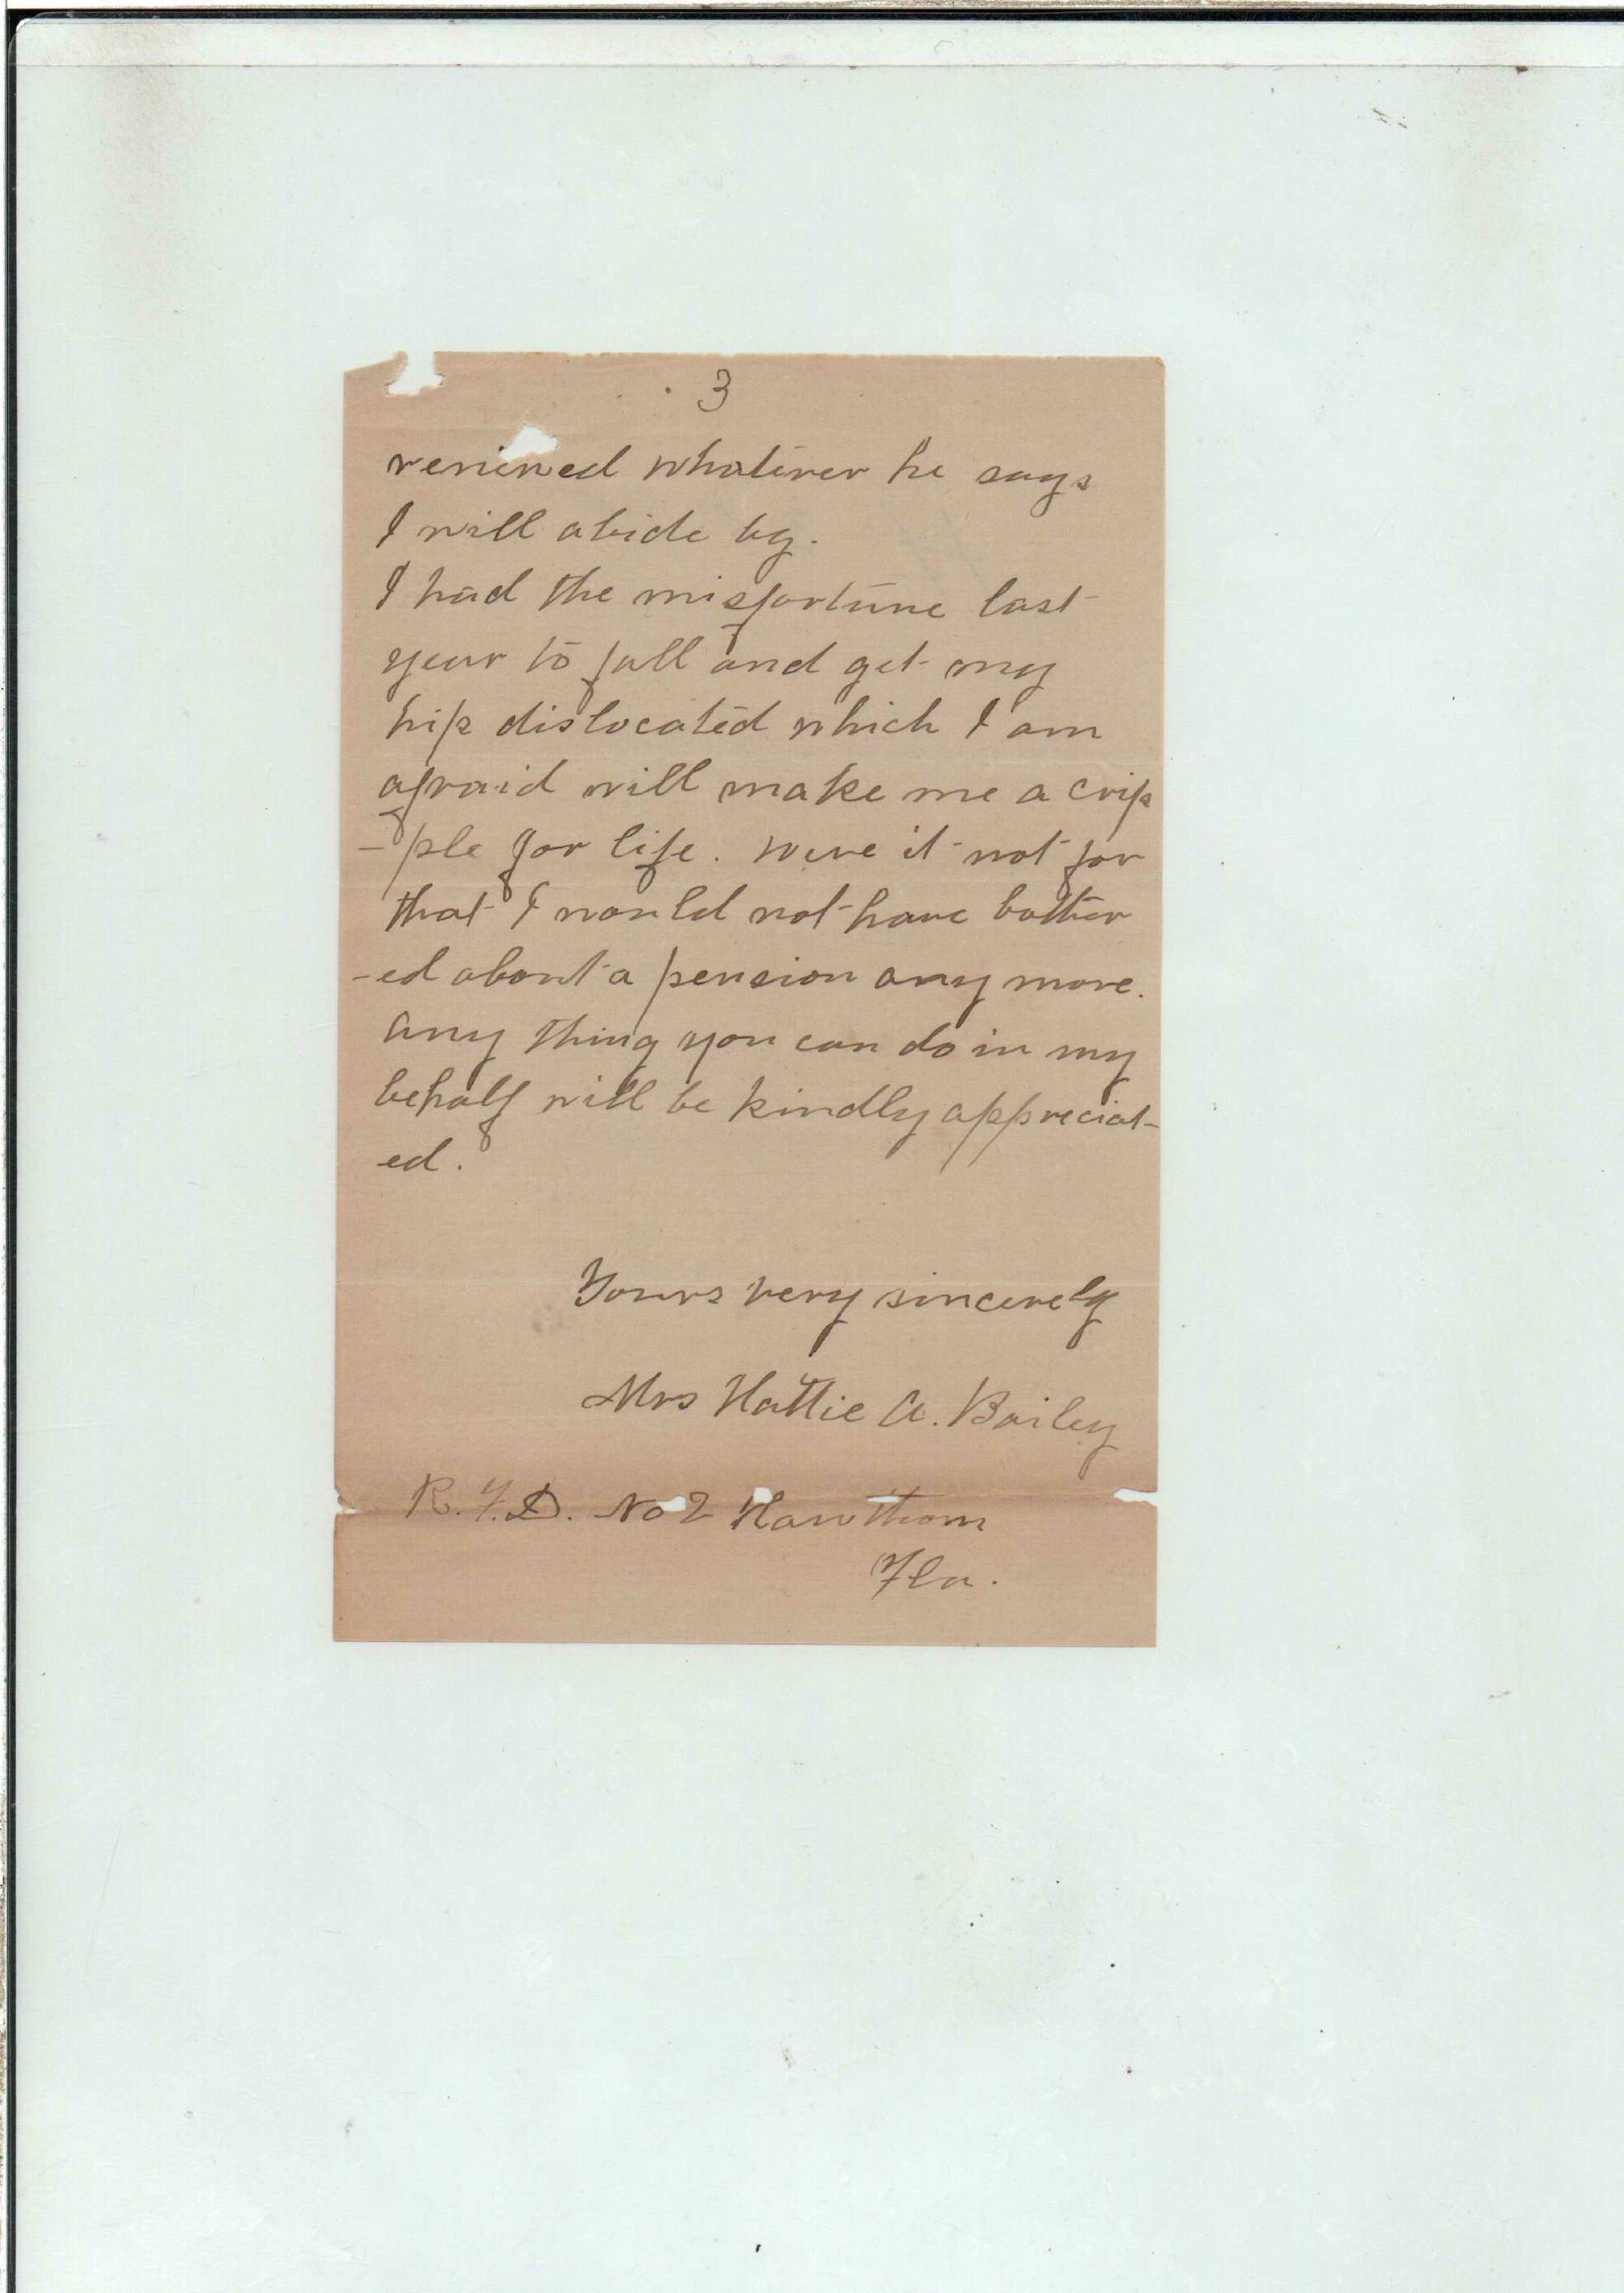 3
reniewed whatever he says
I will abide by.
I had the misfortune last
year to fall and get my
hip dislocated which I am
afraid will make me a crip
-ple for life. Were it not for
that I would not have bother
-ed about a pension any more.
Any thing you can do in my
behalf will be kindly appreciat-
ed.
Yours very sincerely
Mrs Hattie A. Bailey
R.F.D. No 2 Hawthorn
Fla.